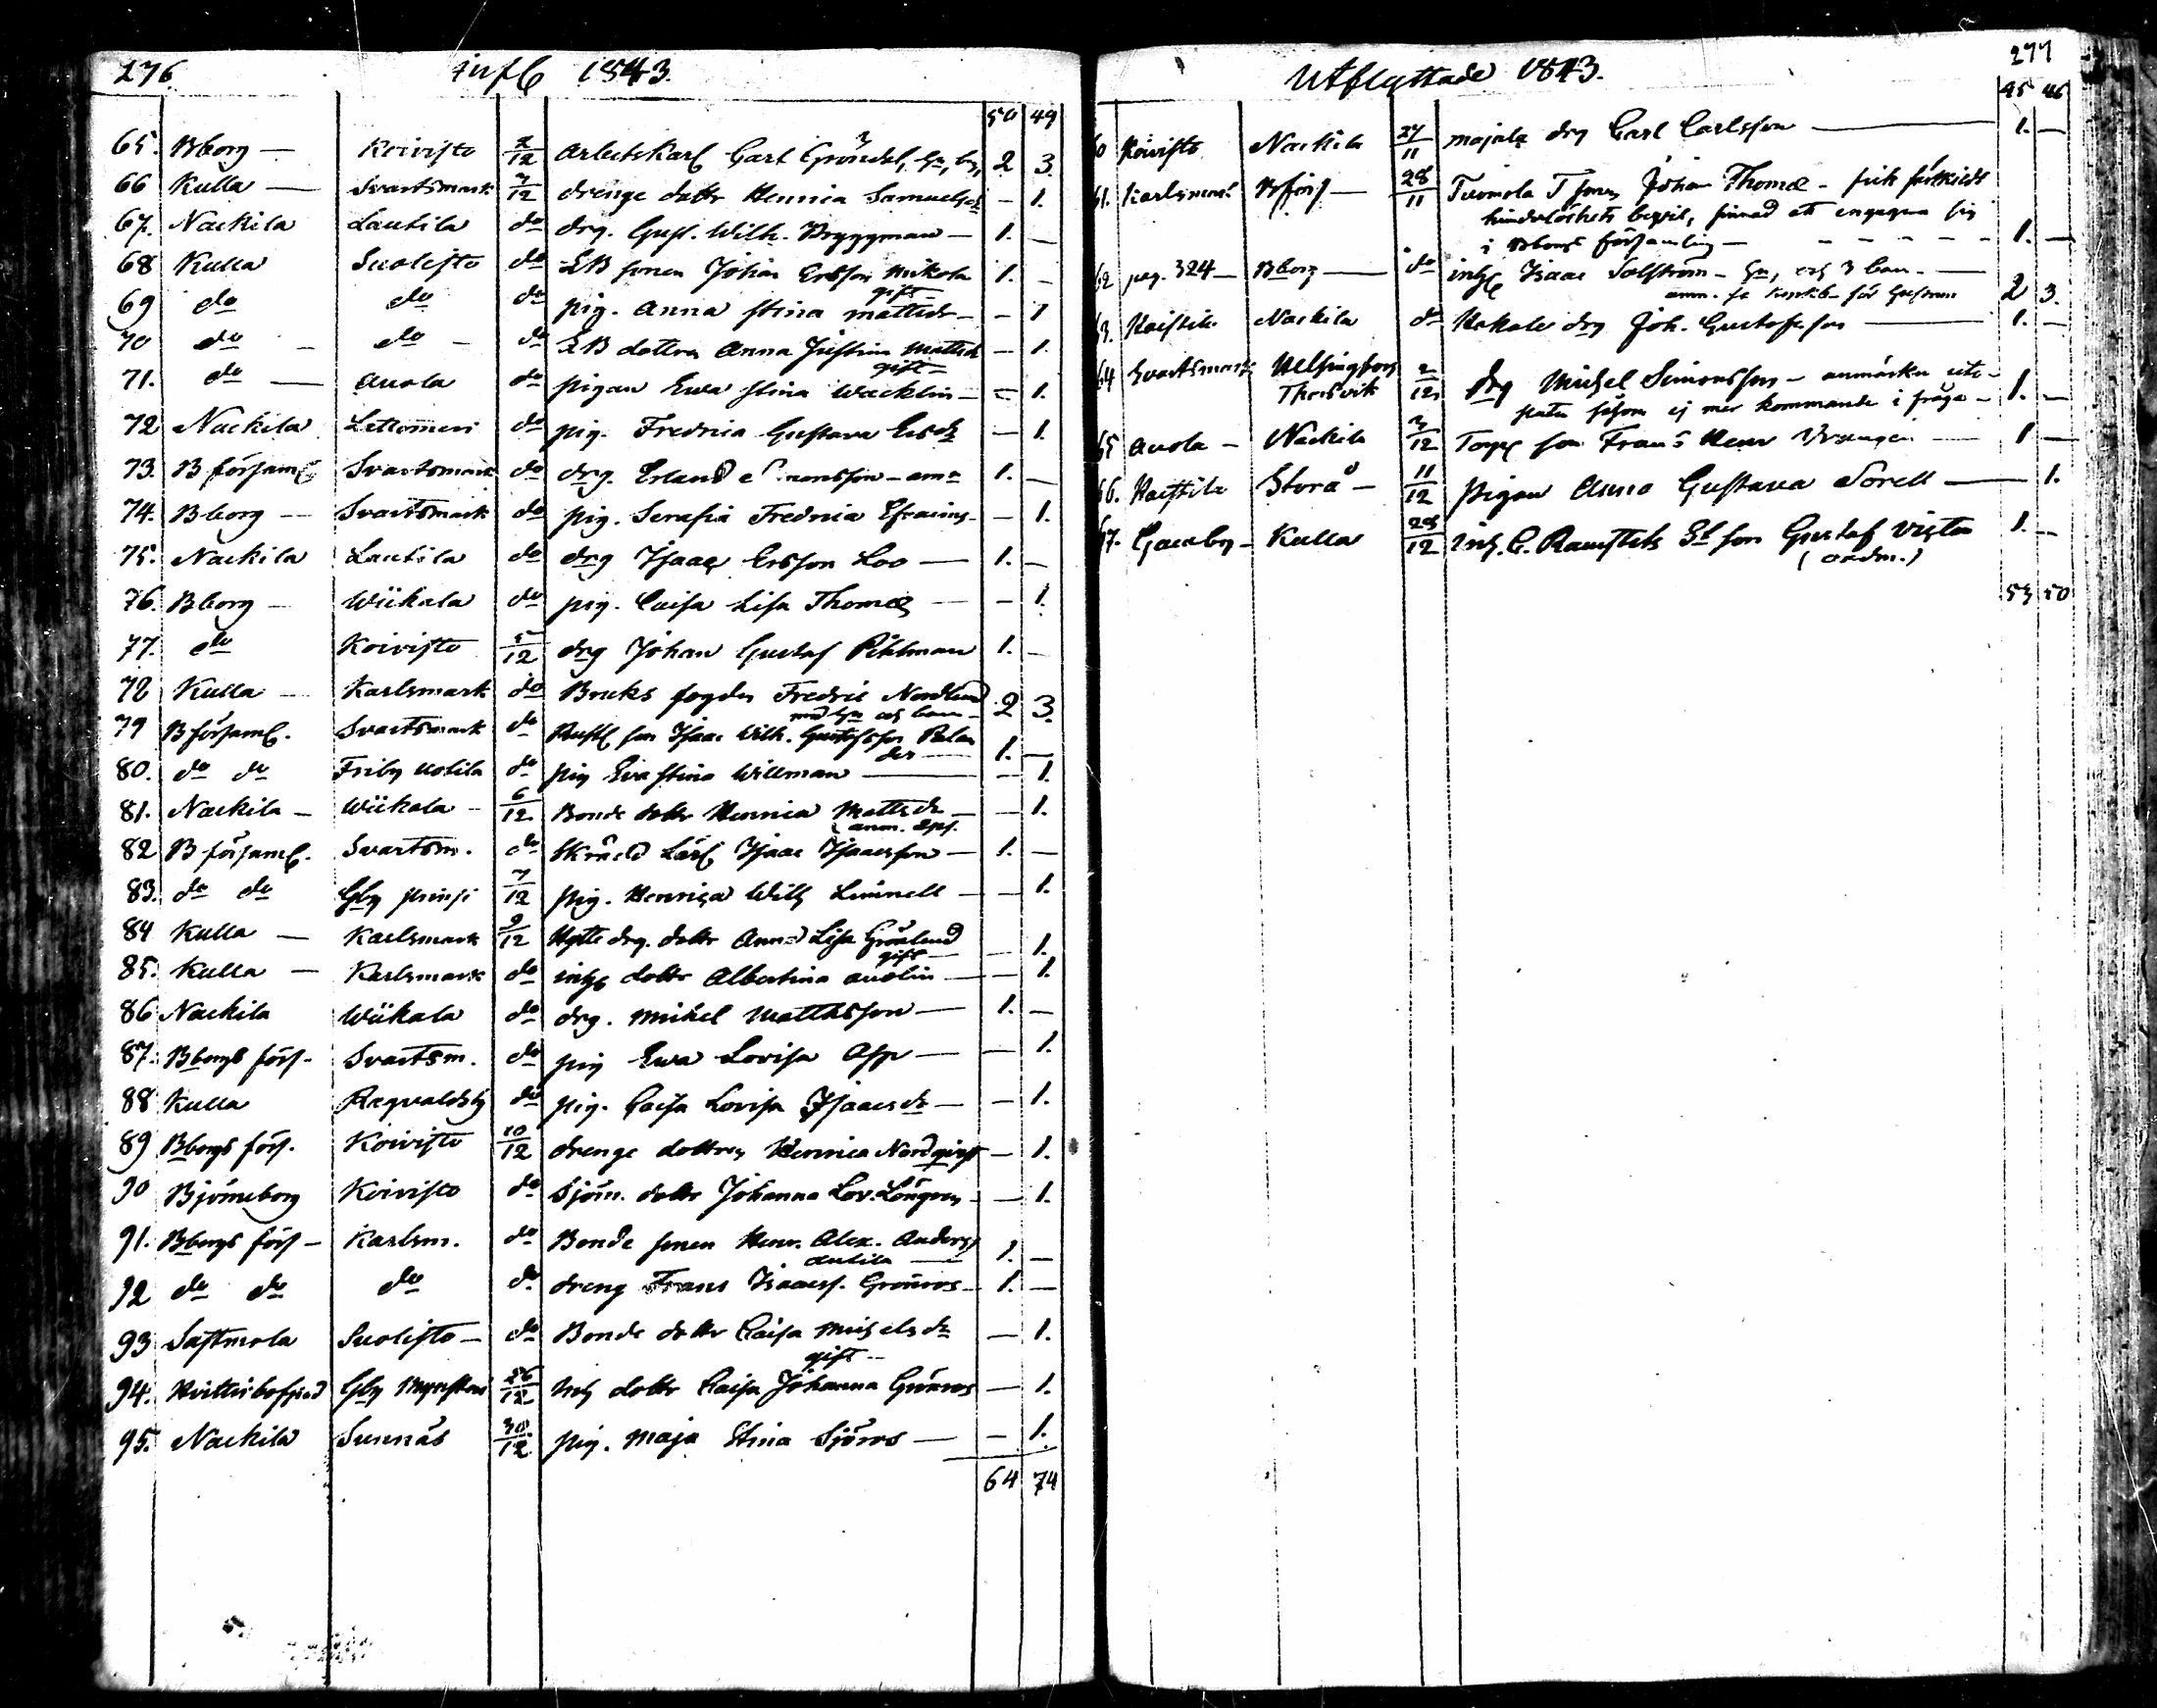 276. Infl 1843.
50 49
65. Bborg — Koivisto 2/12 arbetskarl Carl Gröndal, 2 3.
66 Kulla — Svartsmark 3/12 drenge dottr Henrica Samuelsdr — 1.
67. Nackila Lautila do drg. Gust. Wilh. Bryggman — 1. —
68 Kulla Suolisto do EB sonen Johan Ersson Mikola 1. —
69 do do do pig. Anna Stina Mattsdr — — 1
gift
70 do — do — do EB dottren Anna Justina Mattsd — 1.
71. do — Anola do pigan Ewa Stina Wacklin — — 1.
gift —
72 Nackila Lettomeri do pig. Fredrica Gustava Ersdr — 1.
73. B församl Svartsmark do drg. Erland — 1. —
74. Bborg — Svartsmark do pig. Serafia Fredrica Efraims — — 1.
75. Nackila Lautila do drg Isaac Ersson Loo — 1. —
76. Bborg — Wiikala do pig. Caisa Lisa Thomæ — — 1.
77. do Koivisto 5/12 drg Johan Gustaf Pihlman 1. —
78 Kulla — Karlsmark do Bruks fogden Fredric Nordlund 2 3.
med hu och barn
79 B församl. Svartsmark do Rustl son Isaac Wilh. Gustafsson Palan
der — 1. —
80. do do Friby Uotila do pig Eva Stina Willman — — 1.
81. Nackila — Wiikala — 6/12 Bonde dottr Henrica Mattsdr — — 1.
82 B församl. Svartsm. do Skrädd Lärl Isaac Isaacsson — 1. —
83. do do Gby prinsi 7/12 pig. Henrica Wilh Linnell — — 1.
84 Kulla — Karlsmark 9/12 Hytte drg. dottr Anna Lisa Grönlund — 1.
gift —
85. Kulla — Karlsmark do inhs dottr Albertina Anolin — — 1.
86 Nackila Wiikala do drg. Mickel Matthsson — 1. —
87. Bborgs förs. Svartsm. do pig Ewa Lovisa Asp — — 1.
88 Kulla Ragvaldsby do pig. Caisa Lovisa Isaacsdr — — 1.
89 Bborgs förs. Koivisto 10/12 drenge dottren Henrica Nordqvist — 1.
90 Björneborg Koivisto do Sjöm. dottr Johanna Lov. Löngren — — 1.
91. Bborgs förs — Karlsm. do Bonde sonen Henr. Alex. Anderss 1. —
92 do do do do dreng Frans Isaacss. Grönros — 1. —
93 Sastmola Suolisto — do Bonde dottr Caisa Michelsdr — 1.
gift —
94. Hvittisbofjerd Gby 26/12 Inh dottr Caisa Johanna Grönros — 1.
95. Nackila Sunnäs 30/12 pig. Maja Stina Sjöros — — 1.
64 74
Utflyttade 1843. 277
45 46
60 Koivisto Nackila 27/11 drg Carl Carlsson — 1. —
61. Karlsmark Bförs — 28/11 Tuomola T sonen Johan Thomæ — fick särskildt
hinderlöshets bevis,
i Bborgs församling — 1. —
62 pag. 324 — Bborg — do inhs Isaac Salström — hu, och 3 barn —
2 3.
63. Haistila Nackila do Hakala drg Joh. Gustafsson — 1. —
64 Svartsmark Helsingfors 2/12 drg Michel Simonsson — anmärkn
Thorsvik såsom ej mer kommande i fråga — 1. —
65 Anola — Nackila 3/12 Torp son Frans Henr — 1 —
66. Haistila Storå — 11/12 pigan Anna Gustava Norell — 1.
67. Gammelby — Kulla 29/12 Inh. C. Ramstets St son Gustaf 1. —
53 50